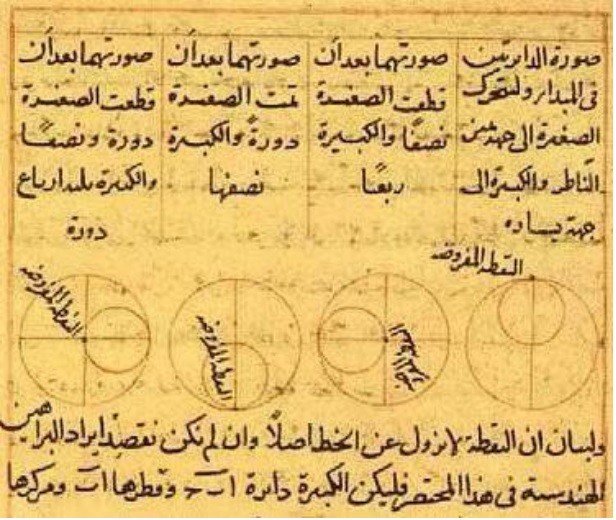 صورة الدايرتين
فى المبدا ولتتحرك
الصغيرة الى جهة يمين
الناظر والكبيرة الى
جهة يساره
صورتهما بعد أن
قطعت الصغيرة
نصفًا والكبيرة
ربعًا
صورتهما بعد أن
تمت الصغيرة
دورةً والكبيرة
نصفها
صورتهما بعد أن
قطعت الصغيرة
دورة ونصفًا
والكبيرة ثلثة ارباع
دورة
النقطة المفروضة
النقطة المفروضة
النقطة المفروضة
ولبيان ان النقطة لا تزول عن الخط اصلاً وان لم نكن نقصد ايراد البراهين
الهندسية فى هذا المختصر فليكن الكبيرة دائرة ا ب ح وقطرها ا ب ومركزها